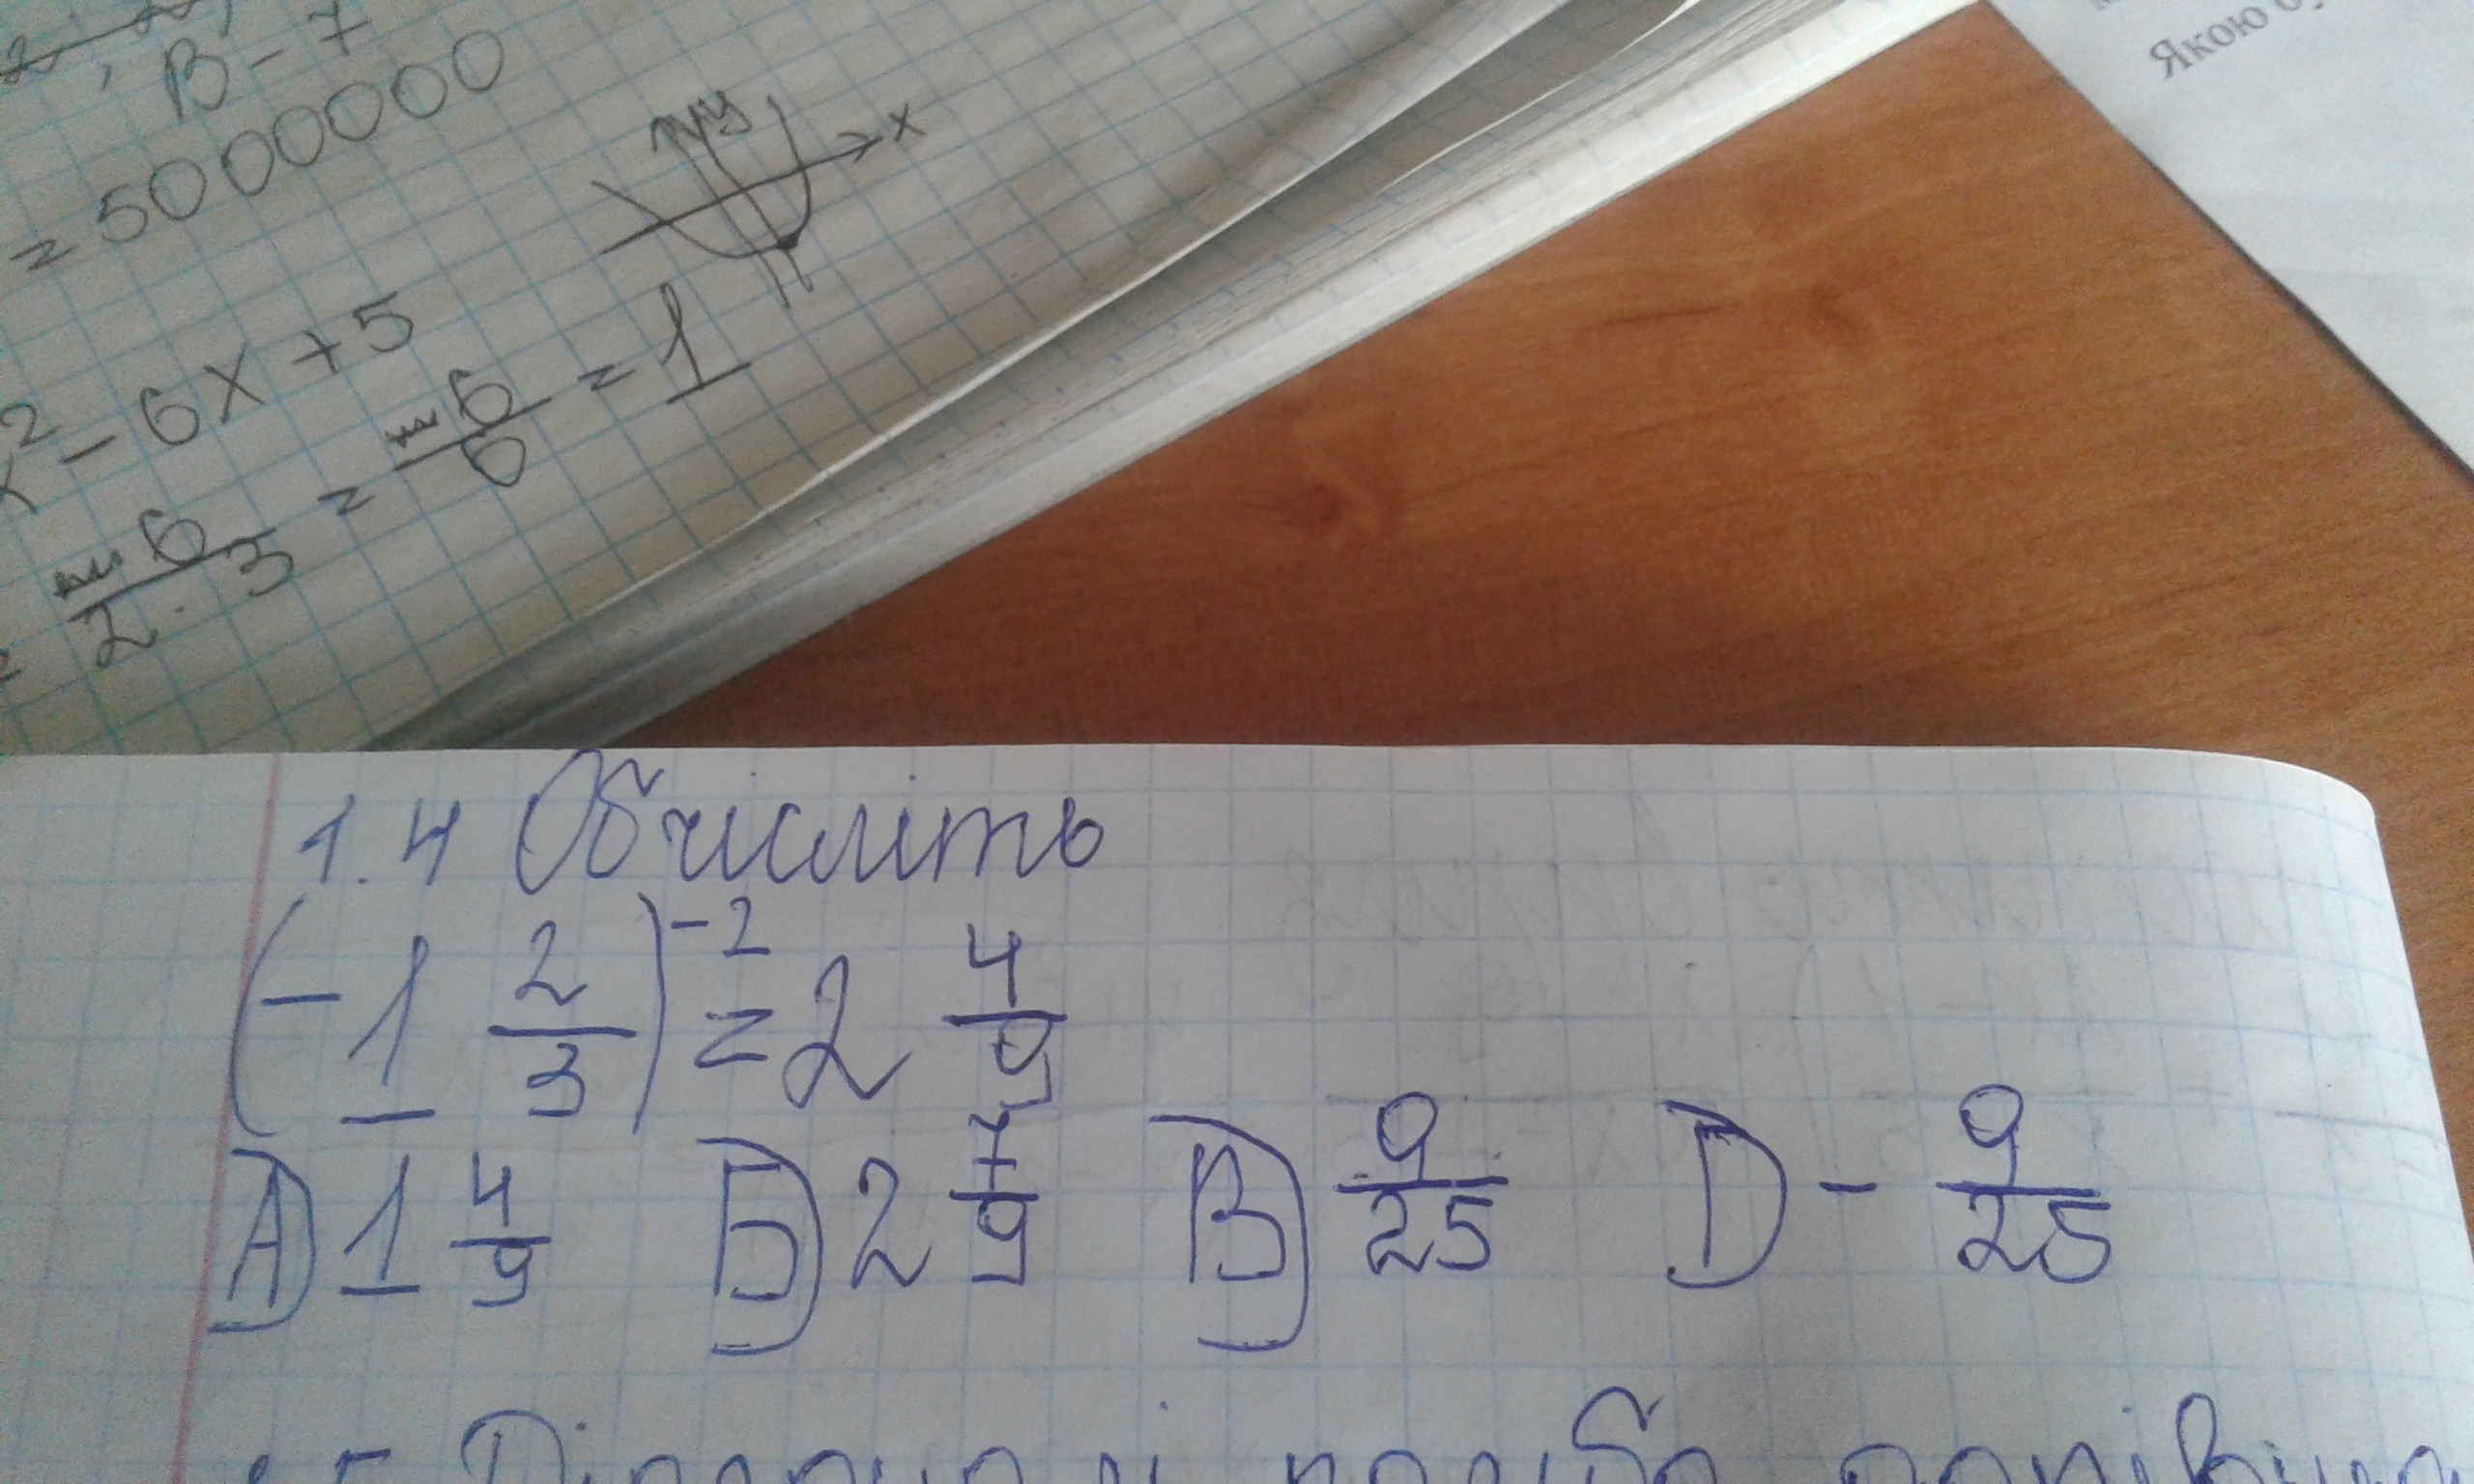 B-7
= 50000000
y
x
x² - 6x + 5
6/2·3 = 6/6 = 1
Якою
1.4 Обчисліть
(-1 2/3)⁻² = 2 4/9
А) 1 4/9 Б) 2 7/9 В) 9/25 D - 9/25